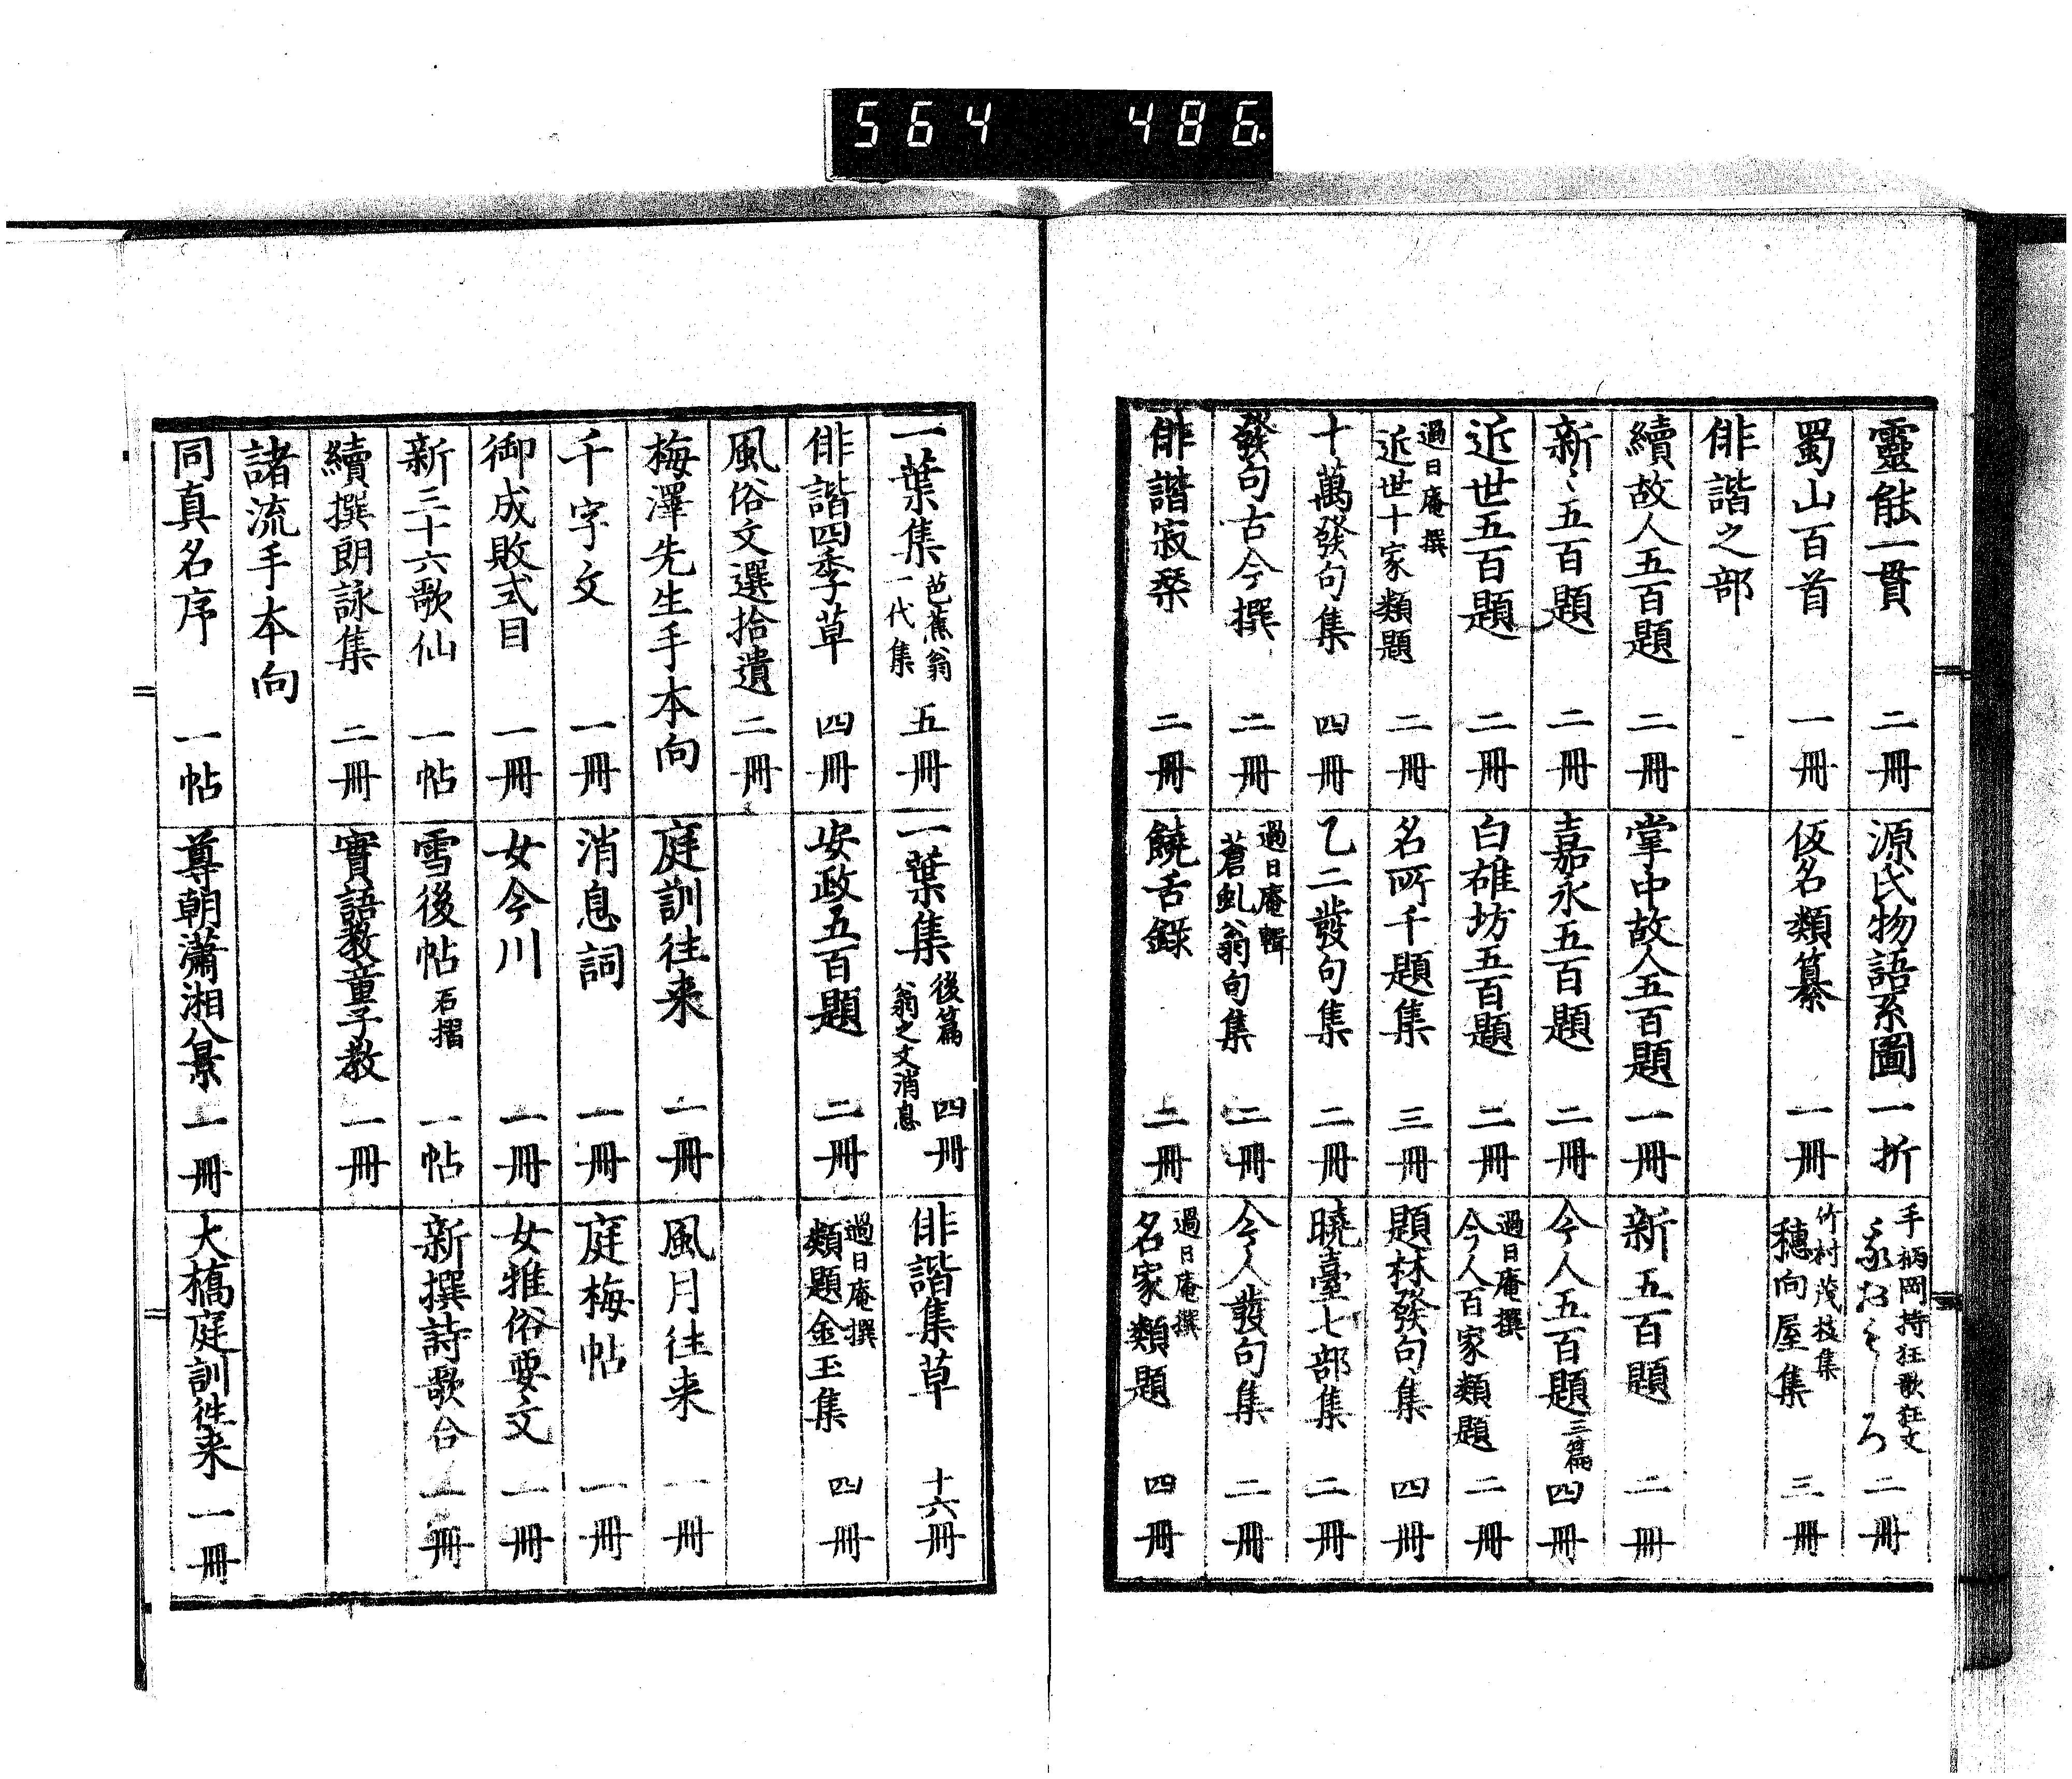 564 486.
靈能一貫 二冊 源氏物語系圖 一折 手柄岡持狂歌狂文 二冊
蜀山百首 一冊 仮名類纂 一冊 竹村茂枝集 穗向屋集 三冊
俳諧之部
續故人五百題 二冊 掌中故人五百題 一冊 新五百題 二冊
新〻五百題 二冊 嘉永五百題 二冊 今人五百題 三篇 四冊
近世五百題 二冊 白雄坊五百題 二冊 過日庵撰 今人百家類題 二冊
過日庵撰 近世十家類題 二冊 名所千題集 三冊 題林發句集 四冊
十萬發句集 四冊 乙二發句集 二冊 曉臺七部集 二冊
發句古今撰 二冊 過日庵輯 蒼虬翁句集 二冊 今人發句集 二冊
俳諧寂栞 二冊 饒舌錄 二冊 過日庵撰 名家類題 四冊
一葉集 芭蕉翁一代集 五冊 一葉集 後篇 翁之文消息 四冊 俳諧集草 十六冊
俳諧四季草 四冊 安政五百題 二冊 過日庵撰 類題金玉集 四冊
風俗文選拾遺 二冊
梅澤先生手本向 庭訓往来 一冊 風月往来 一冊
千字文 一冊 消息詞 一冊 庭梅帖 一冊
御成敗式目 一冊 女今川 一冊 女雅俗要文 一冊
新三十六歌仙 一帖 雪後帖 石摺 一帖 新撰詩歌合 一冊
續撰朗詠集 二冊 實語教童子教 一冊
諸流手本向
同真名序 一帖 尊朝瀟湘八景 一冊 大橋庭訓往来 一冊